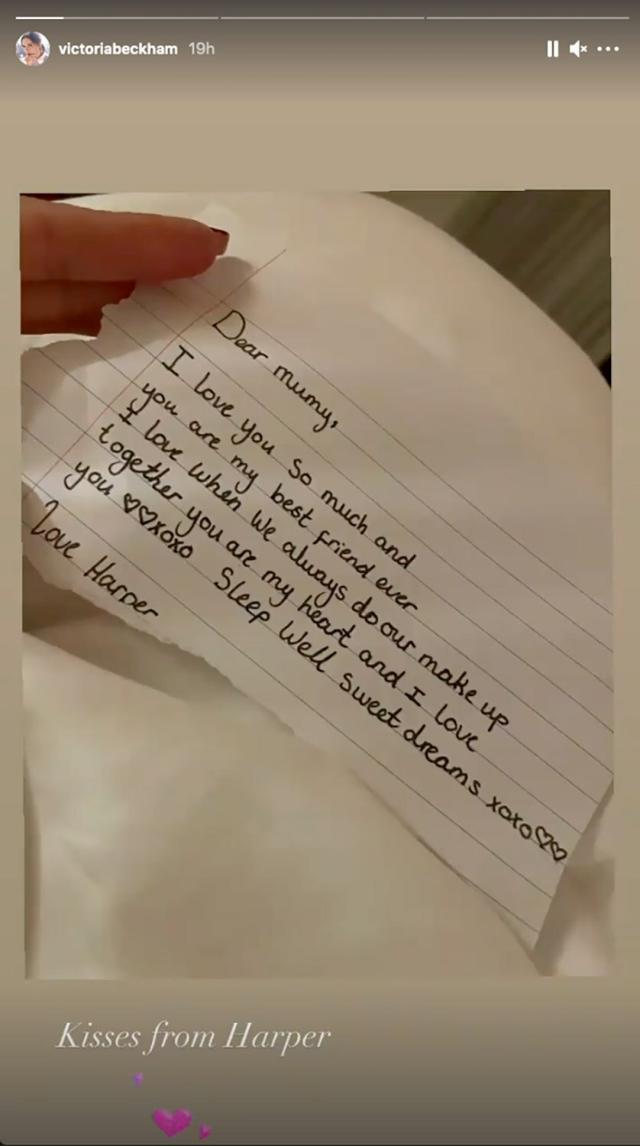 victoriabeckham 19h
Dear mumy,
I love you So much and
you are my best friend ever
I love when We always do our make up
together you are my heart and I love
you ♡♡xoxo Sleep Well sweet dreams xoxo♡♡
Love Harper
Kisses from Harper